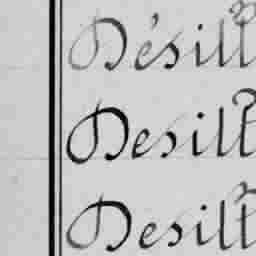 Désill
Desill
Desill